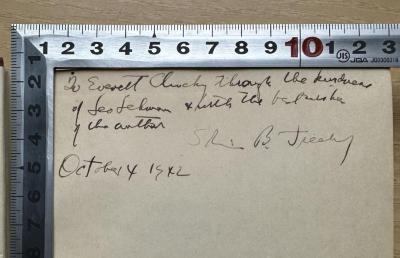 1 2 3 4 5 6 7 8 9 10 1 2 3
JIS JBA
1 2 3 4 5 6 7 8
To Everett through the kindness
of Leo Lehman & with the best wishes
of the author
B.
October 4 1942